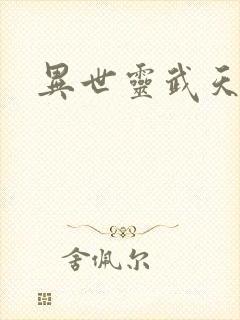 異世靈武天
舍佩尔